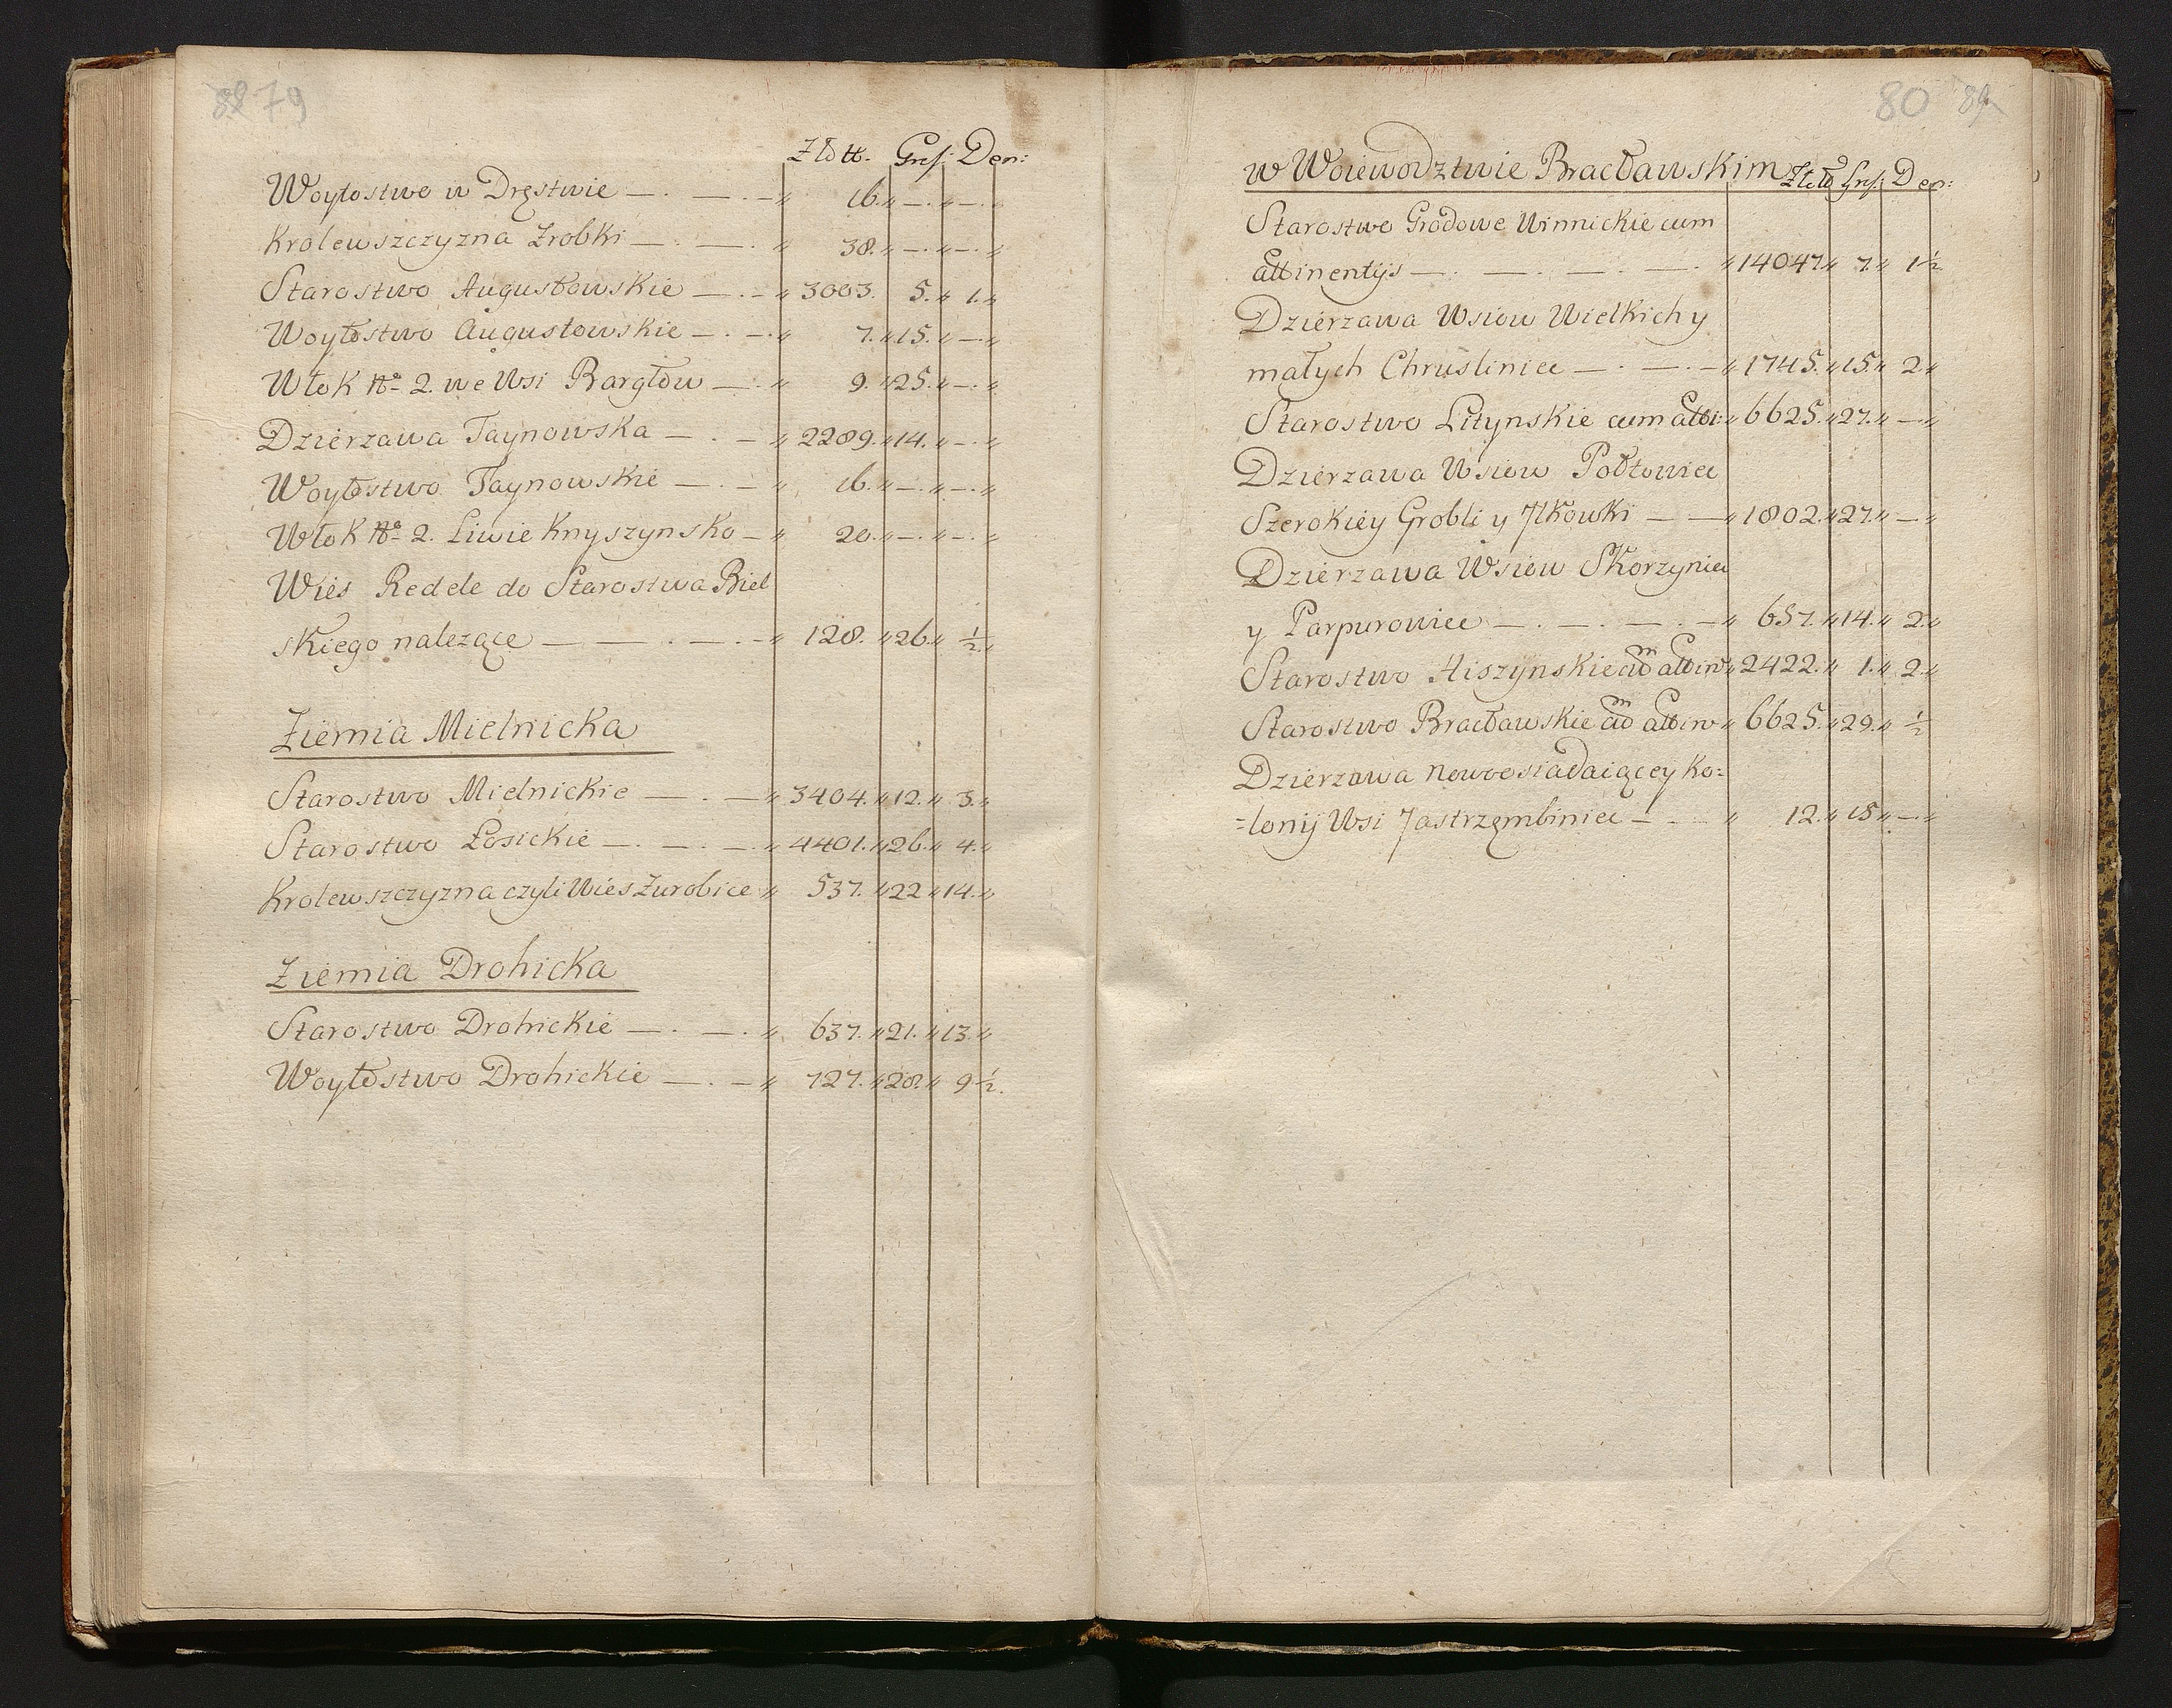 79
Złott. Gros: Den:
Woytostwo w Dręstwie — . — . — „ 16. „ — . „ — . „
Krolewszczyzna Zrobki — . — . „ 38. „ — . „ — . „
Starostwo Augustowskie — . — „ 3003. 5. „ 1. „
Woytostwo Augustowskie — . — . „ 7. „ 15. „ — . „
Włok No 2. we Wsi Bargłow — . „ 9. „ 25. „ — . „
Dzierzawa Taynowska — . — „ 2289. „ 14. „ — . „
Woytostwo Taynowskie — . — „ 16. „ — . „ — . „
Włok No 2. Liwie Knyszynsko — „ 20. „ — . „ — . „
Wies Redele do Starostwa Biel
skiego nalezące — — . — . — „ 128. „ 26. „ ½. „
Ziemia Mielnicka
Starostwo Mielnickie — . — „ 3404. „ 12. „ 3. „
Starostwo Łosickie — . — . — „ 4401. „ 26. „ 4. „
Krolewszczyzna czyli Wies Zurobice „ 537. „ 22 „ 14. „
Ziemia Drohicka
Starostwo Drohickie — . — . „ 637. „ 21. „ 13 „
Woytostwo Drohickie — . — „ 727. „ 28. „ 9½.
80
w Woiewodztwie Bracławskim Złott Gros: Den:
Starostwo Grodowe Winnickie cum
attinentijs — . — . — . — . „ 14047. „ 7. „ 1½
Dzierzawa Wsiow Wielkich y
małych Chrusliniec — . — . — „ 1745. „ 15. „ 2 „
Starostwo Litynskie cum atti: „ 6625. „ 27. „ — „
Dzierzawa Wsiow Połtowiec
Szerokiey Grobli y Jlkowki — — „ 1802. „ 27. „ — „
Dzierzawa Wsiow Skorzyniec
y Parpurowiec — . — . — . — „ 657. „ 14. „ 2. „
Starostwo Hiszynskie cum attin „ 2422. „ 1. „ 2. „
Starostwo Bracławskie cum attin „ 6625. „ 29. „ ½
Dzierzawa nowoosiadaiącey Ko=
=lonij Wsi Jastrzęmbiniec — . — „ 12. „ 15 „ — . „